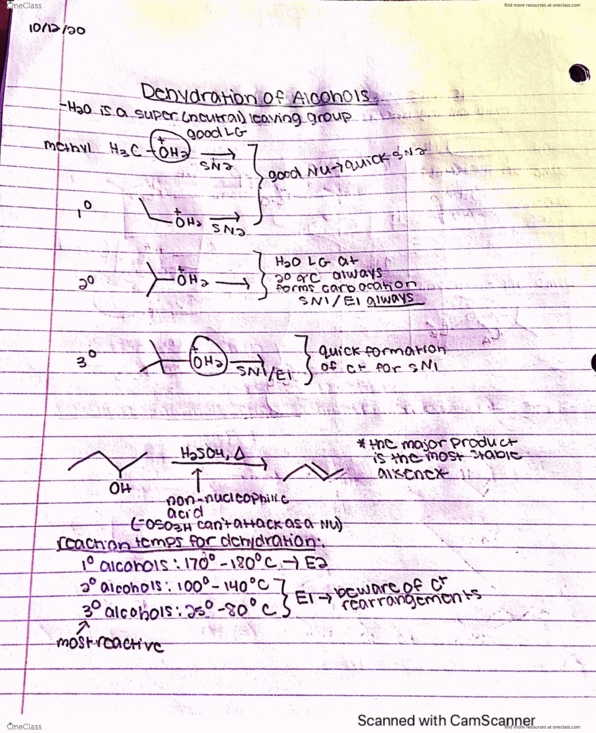 OneClass
find more resources at oneclass.com
10/12/20
Dehydration of Alcohols
-H2O is a super (neutral) leaving group
good LG
methyl H3C-OH2+ → SN2
good NU → quick SN2
1° +OH2 → SN2
2° +OH2 →
H2O LG at
2° αC always
forms carbocation
SN1/E1 always
3° +OH2 → SN1/E1
quick formation
of C+ for SN1
H2SO4, Δ
OH
*the major product
is the most stable
alkene*
non-nucleophilic
acid
(-OSO3H can't attack as a NU)
reaction temps for dehydration:
1° alcohols: 170°-180°C → E2
2° alcohols: 100°-140°C
3° alcohols: 25°-80°C
E1 → beware of C+
rearrangements
most reactive
Scanned with CamScanner
OneClass
find more resources at oneclass.com